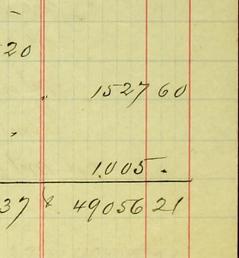 20
1527 60
1.005.
37 & 49056 21